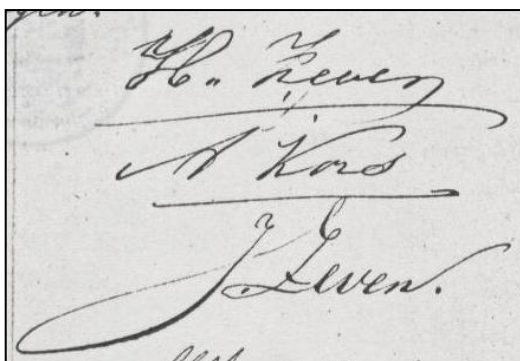 H. Zeven
A Kors
J. Zeven.